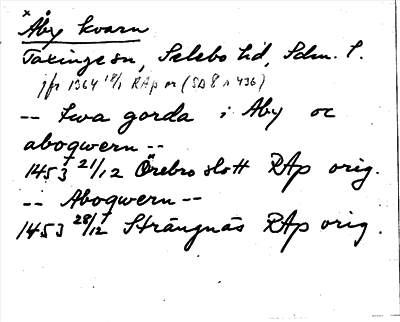 x
Åby kvarn
Taxinge sn, Selebo hd, Sdm. l.
jfr 1364 18/1 RAp or (SD 8 s 436)
-- twa gorda i Aby oc
aboqwern --
1453 21/12 Örebro slott RAp orig.
-- Aboqwern --
1453 28/12 Strängnäs RAp orig.